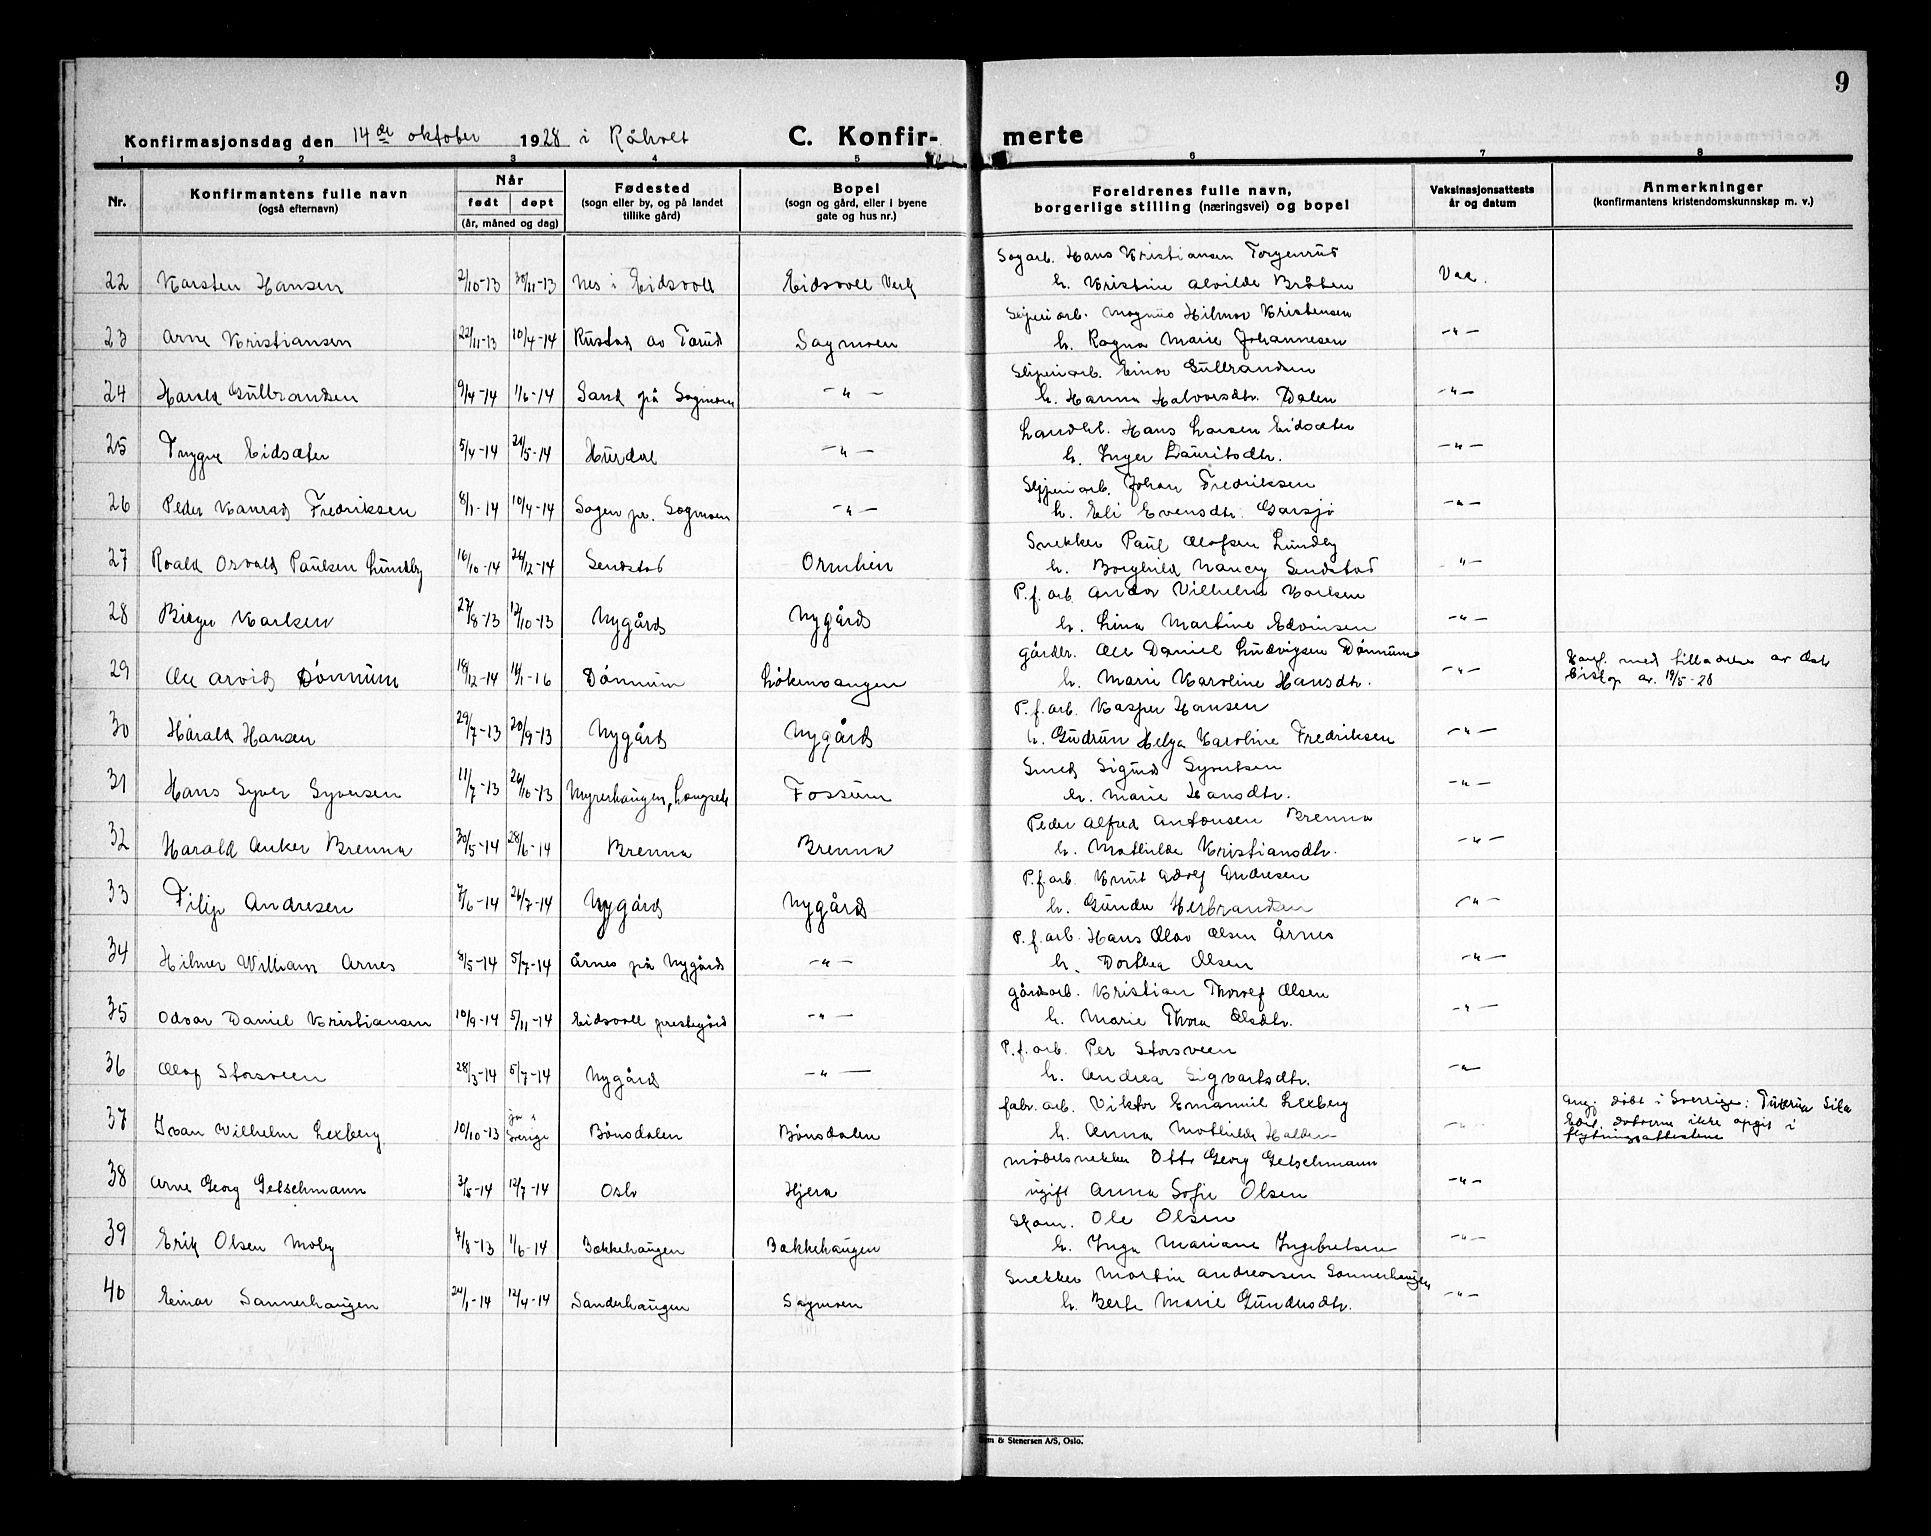 9
Konfirmasjonsdag den 14de oktober 1928 i Råholt C. Konfir- merte
1 2 3 4 5 6 7 8
Nr. Konfirmantens fulle navn (også efternavn) Når født døpt (år, måned og dag) Fødested (sogn eller by, og på landet tillike gård) Bopel (sogn og gård, eller i byene gate og hus nr.) Foreldrenes fulle navn, borgerlige stilling (næringsvei) og bopel Vaksinasjonsattests år og datum Anmerkninger (konfirmantens kristendomskunnskap m. v.)
Sagarb. Hans Kristiansen Torgenrud
22 Karsten Hansen 2/10-13 30/11-13 Nes i Eidsvoll Eidsvoll Verk h. Kristine Alvilde Bråten Vac.
Sliperiarb. Magnus Hilmar Kristensen
23 Arne Kristiansen 22/11-13 10/4-14 Rustad av Tarud Sagmoen h. Ragna Marie Johannesen -"-
Sliperiarb. Einar Gulbrandsen
24 Harald Gulbrandsen 9/4-14 1/6-14 Sand på Sagmoen -"- h. Hanna Halvorsdtr. Dalen -"-
Landhl. Hans Larsen Eidsæter
25 Trygve Eidsæter 5/4-14 21/5-14 Hurdal -"- h. Inger Lauritsdtr. -"-
Sliperiarb. Johan Fredriksen
26 Peder Konrad Fredriksen 8/1-14 10/4-14 Sagen pr. Sagmoen -"- h. Eli Evensdtr. Garsjø -"-
Snekker Paul Olafsen Lundby
27 Roald Osvald Paulsen Lundby 16/10-14 26/12-14 Sendstad Ormlien h. Borghild Nancy Sendstad -"-
P.f.arb. Andor Vilhelm Karlsen
28 Birger Karlsen 27/8-13 12/10-13 Nygård Nygård h. Lina Martine Edvinsen -"-
gårdbr. Ole Daniel Ludvigsen Dønnum
29 Ole Arvid Dønnum 18/12-14 16/1-16 Dønnum Løkenvangen h. Marie Karoline Hansdtr. -"- Konf. med tilladelse av Oslo
biskop av. 19/5-28
P.f.arb. Kasper Hansen
30 Harald Hansen 29/7-13 20/9-13 Nygård Nygård h. Gudrun Helga Karoline Fredriksen -"-
Smed Sigurd Syvertsen
31 Hans Syver Syversen 11/7-13 26/10-13 Myrerhaugen, Langseth Fossum h. Marie Hansdtr. -"-
Peder Alfred Antonsen Brenna
32 Harald Anker Brenna 30/5-14 28/6-14 Brenna Brenna h. Mathilde Kristiansdtr. -"-
P.f.arb. Knut Adolf Andresen
33 Filip Andresen 7/6-14 26/7-14 Nygård Nygård h. Gunda Herbrandsen -"-
P.f.arb. Hans Olav Olsen Årnes
34 Hilmer William Arnes 8/5-14 5/7-14 Årnes på Nygård -"- h. Dorthea Olsen -"-
gårdsarb. Kristian Thorolf Olsen
35 Odvar Daniel Kristiansen 10/9-14 5/11-14 Eidsvoll prestegård -"- h. Marie Thora Olsdtr. -"-
P.f.arb. Per Storsveen
36 Olaf Storsveen 28/3-14 5/7-14 Nygård -"- h. Andrea Sigvartsdtr. -"-
fabr. arb. Viktor Emanuel Lexberg
37 Ivan Wilhelm Lexberg 10/10-13 i Sverige Bønsdalen Bønsdalen h. Anna Mathilde Halden -"- Ang. døbt i Sverrige:
datoene ikke opgit i
flytningsattestene
møbelsnekker Otto Georg Getschmann
38 Arne Georg Getschmann 3/5-14 12/7-14 Oslo Hjera ugift Anna Sofie Olsen -"-
Skom. Ole Olsen
39 Erik Olsen Moby 7/8-13 1/6-14 Bakkehaugen Bakkehaugen h. Inga Mariane Ingebretsen -"-
Snekker Martin Andreassen Sannerhaugen
40 Einar Sannerhaugen 24/1-14 12/4-14 Sanderhaugen Sagmoen h. Berte Marie Gundersdtr. -"-
& Stenersen A/S, Oslo.